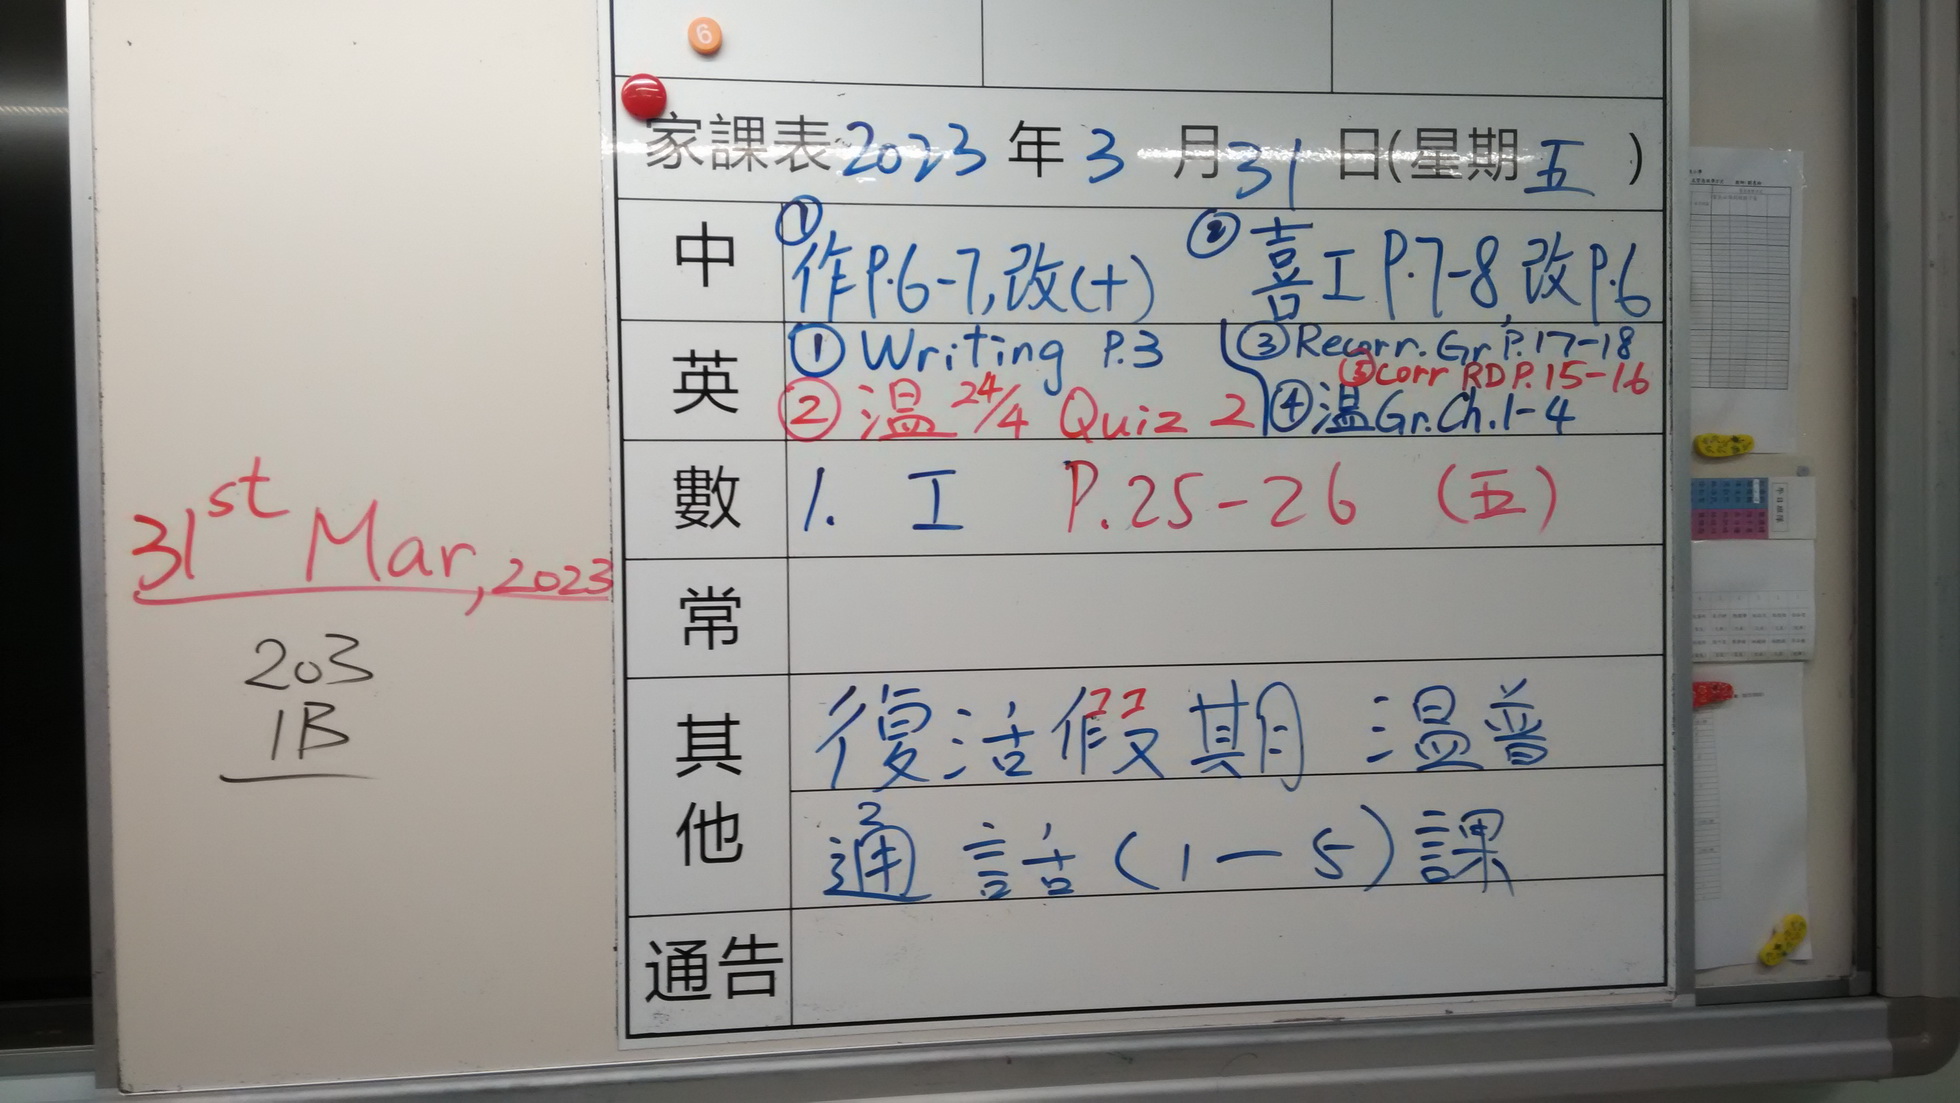 6
家課表 2023 年 3 月 31 日(星期 五 )
中 ① 作P.6-7,改(十) ② 喜工P.7-8,改P.6
英 ① Writing P.3 ③ Recorr. Gr P.17-18
⑤ corr RD P.15-16
② 温 24/4 Quiz 2 ④ 温 Gr.Ch.1-4
數 1. 工 P.25-26 (五)
常
其他 復活假期 温普
通2話(1-5)課
通告
31st Mar, 2023
203
1B